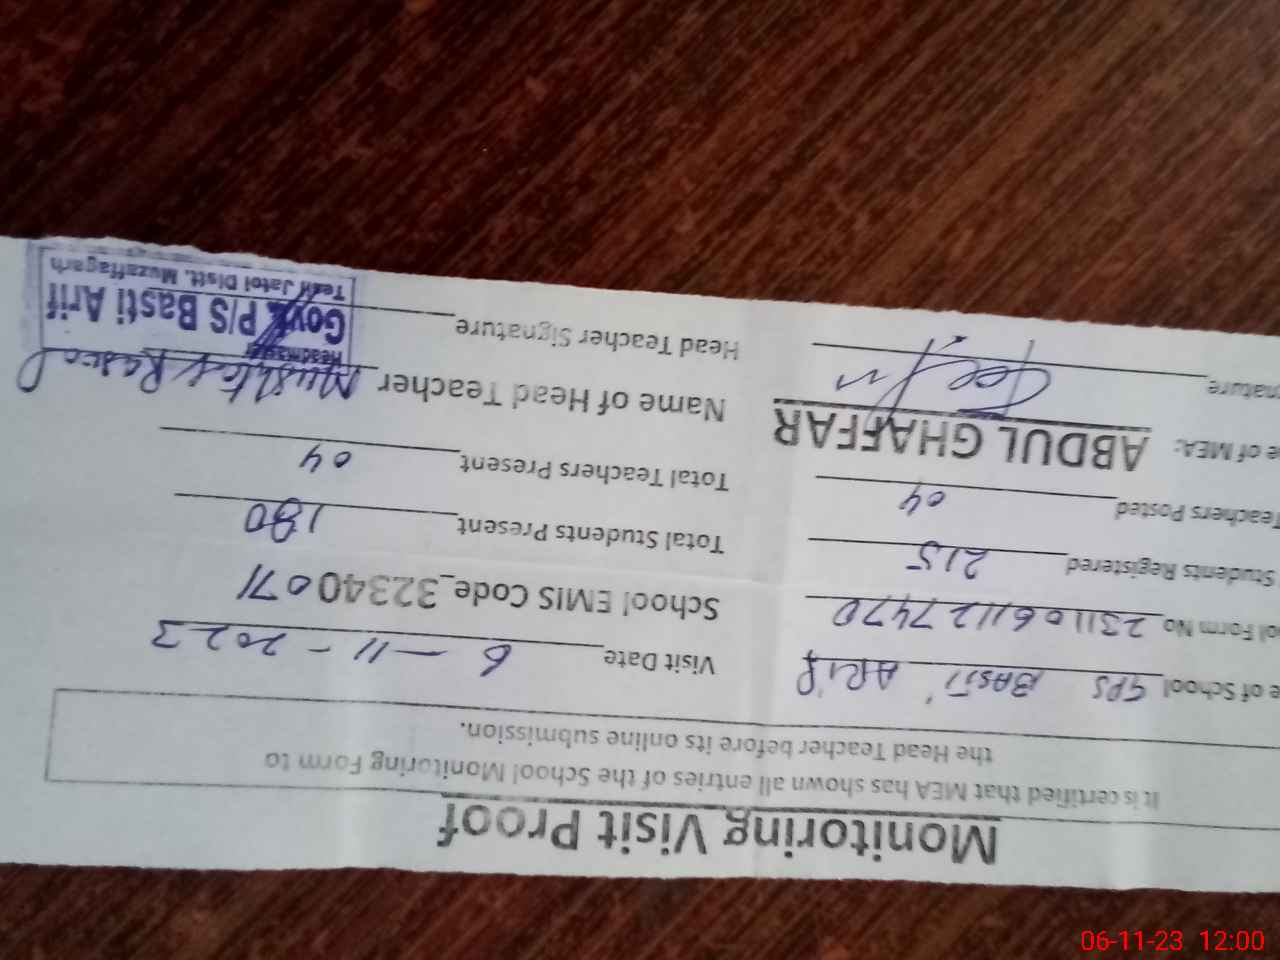 Monitoring Visit Proof
It is certified that MEA has shown all entries of the School Monitoring Form to
the Head Teacher before its online submission.
e of School GPS BASTI ARIF Visit Date 6-11-2023
ol Form No 231106112747 School EMIS Code 32340071
Students Registered 215 Total Students Present 180
Teachers Posted 04 Total Teachers Present 04
e of MEA: ABDUL GHAFFAR Name of Head Teacher Mushtaq Rasool
nature Head Teacher Signature
Headmaster
Govt. P/S Basti Arif
Teh: Jatoi Distt. Muzaffagarh
06-11-23 12:00